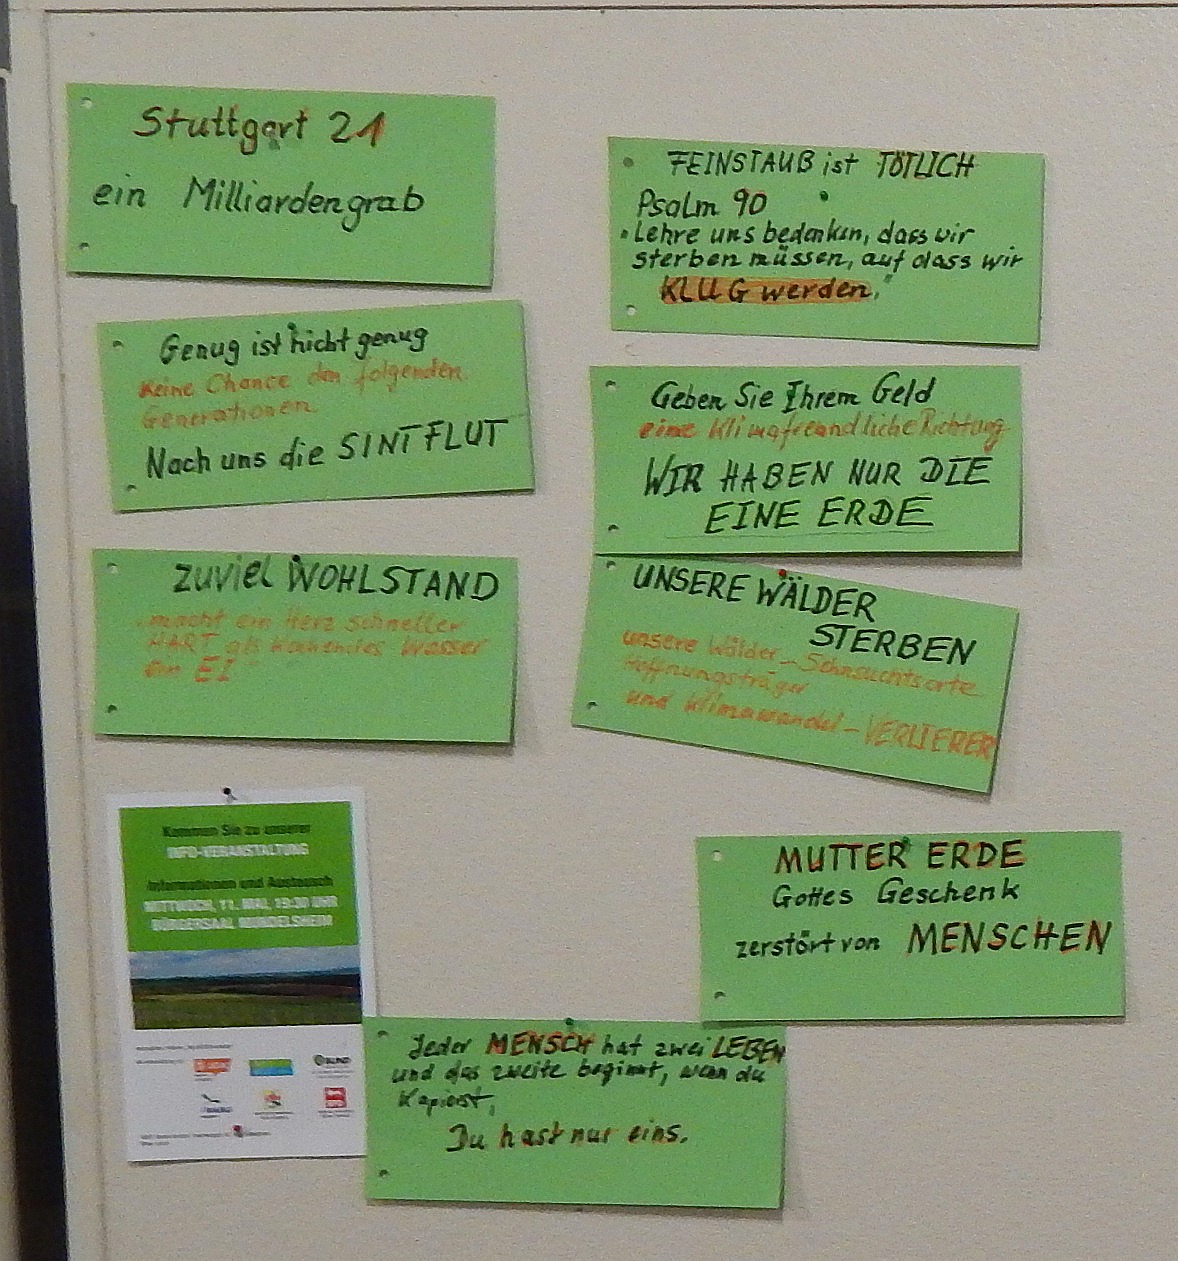 Stuttgart 21
ein Milliardengrab
Genug ist nicht genug
Keine Chance den folgenden
Generationen
Nach uns die SINTFLUT
zuviel WOHLSTAND
macht ein Herz schneller
HART als kochendes Wasser
ein EI"
FEINSTAUB ist TÖTLICH
Psalm 90
"Lehre uns bedenken, dass wir
sterben müssen, auf dass wir
KLUG werden,"
Geben Sie Ihrem Geld
eine klimafreundliche Richtung
WIR HABEN NUR DIE
EINE ERDE
UNSERE WÄLDER
STERBEN
unsere Wälder - Sehnsuchtsorte
Hoffnungsträger
und Klimawandel - VERLIERER
Kommen Sie zu unserer
INFO-VERANSTALTUNG
Informationen und Austausch
MITTWOCH, 11. MAI, 19:30 UHR
BÜRGERSAAL MUNDELSHEIM
BUND
NABU
MUTTER ERDE
Gottes Geschenk
zerstört von MENSCHEN
Jeder MENSCH hat zwei LEBEN
und das zweite beginnt, wenn du
Kapierst,
Du hast nur eins.